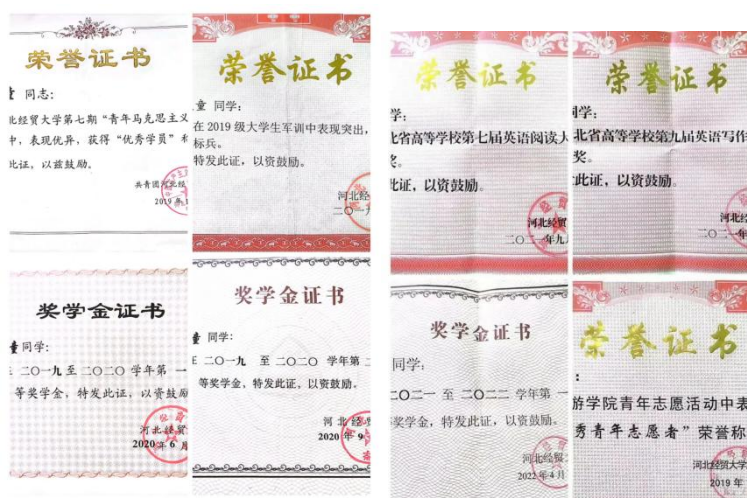 荣誉证书
同志:
北经贸大学第七期“青年马克思主义
中,表现优异,获得“优秀学员”
此证,以兹鼓励。
共青团河北经
2019年1
荣誉证书
童 同学:
在2019级大学生军训中表现突出,
标兵。
特发此证,以资鼓励。
河北经
二〇一九
荣誉证书
学:
北省高等学校第七届英语阅读大
奖。
此证,以资鼓励。
河北经贸
二〇二一年九
荣誉证书
同学:
北省高等学校第九届英语写作
奖。
此证,以资鼓励。
河北经
二〇二一年
奖学金证书
同学:
二〇一九 至 二〇二〇 学年第 一
等奖学金,特发此证,以资鼓励
河北经贸
2020年6月
奖学金证书
童 同学:
二〇一九 至 二〇二〇 学年第 二
等奖学金,特发此证,以资鼓励。
河北经贸
2020年9
奖学金证书
同学:
二〇二一 至 二〇二二 学年第 一
奖学金,特发此证,以资鼓励。
河北经贸
2022年4月
荣誉证书
:
游学院青年志愿活动中表
秀青年志愿者”荣誉称
河北经贸大学
2019年